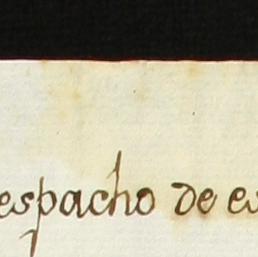 espacho de es